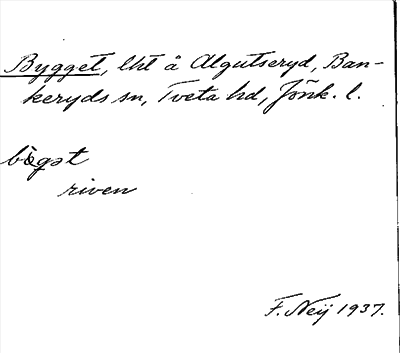 Bygget, lht å Algutseryd, Ban-
keryds sn, Tveta hd, Jönk. l.
bògət
riven
F. Neij 1937.